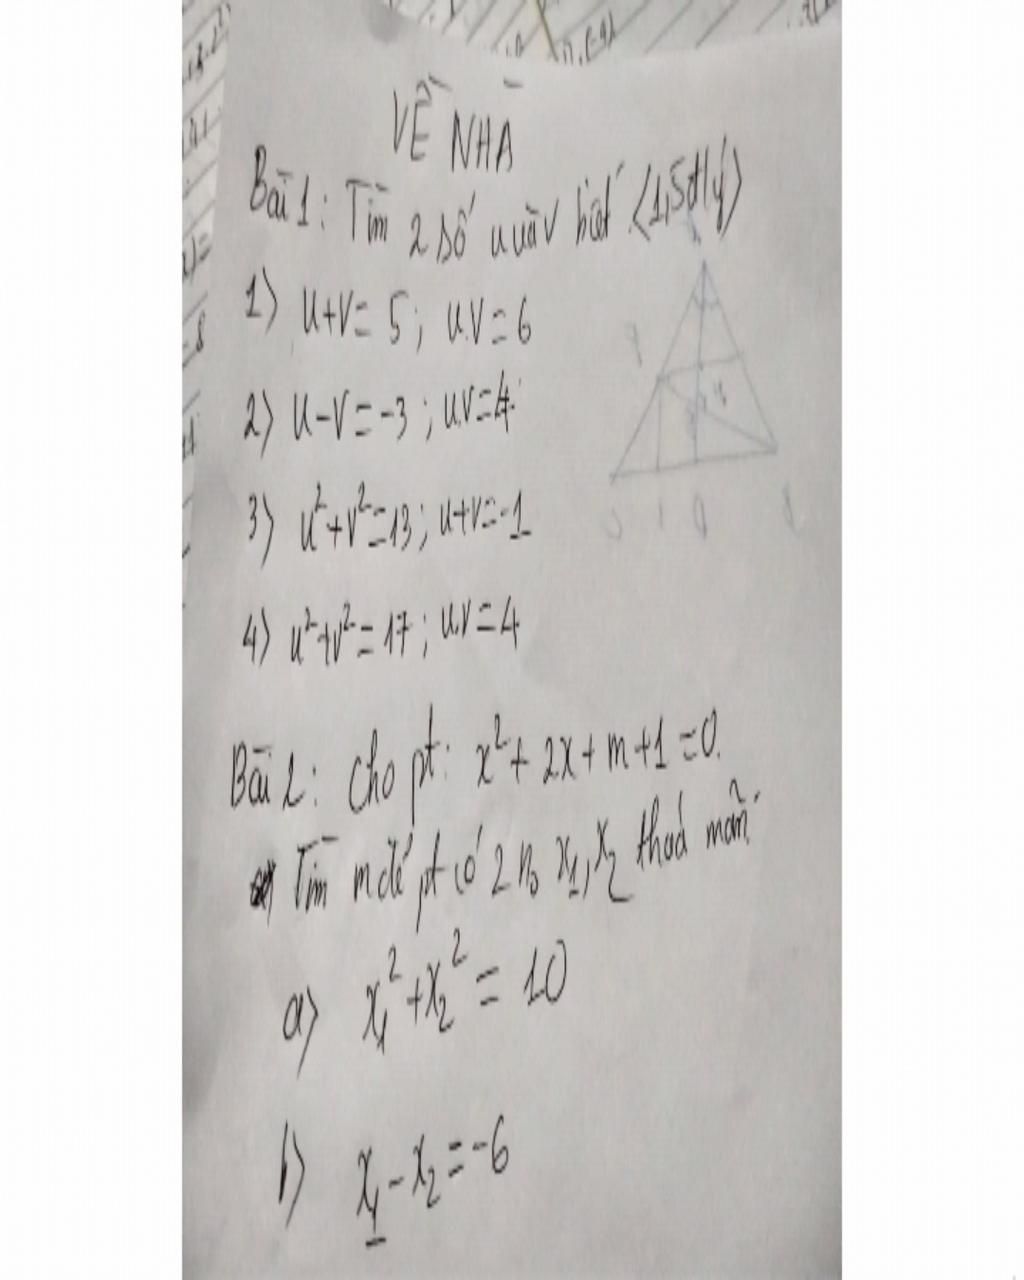 VỀ NHÀ
Bài 1: Tìm 2 số u và v biết <1,5đ/ý>
1) u+v = 5; u.v = 6
2) u-v = -3; u.v = 4
3) u²+v² = 13; u+v = -1
4) u²+v² = 17; u.v = 4
Bài 2: Cho pt: x² + 2x + m + 1 = 0.
Tìm m để pt có 2 n₀ x₁, x₂ thoả mãn
a) x₁² + x₂² = 10
b) x₁ - x₂ = -6